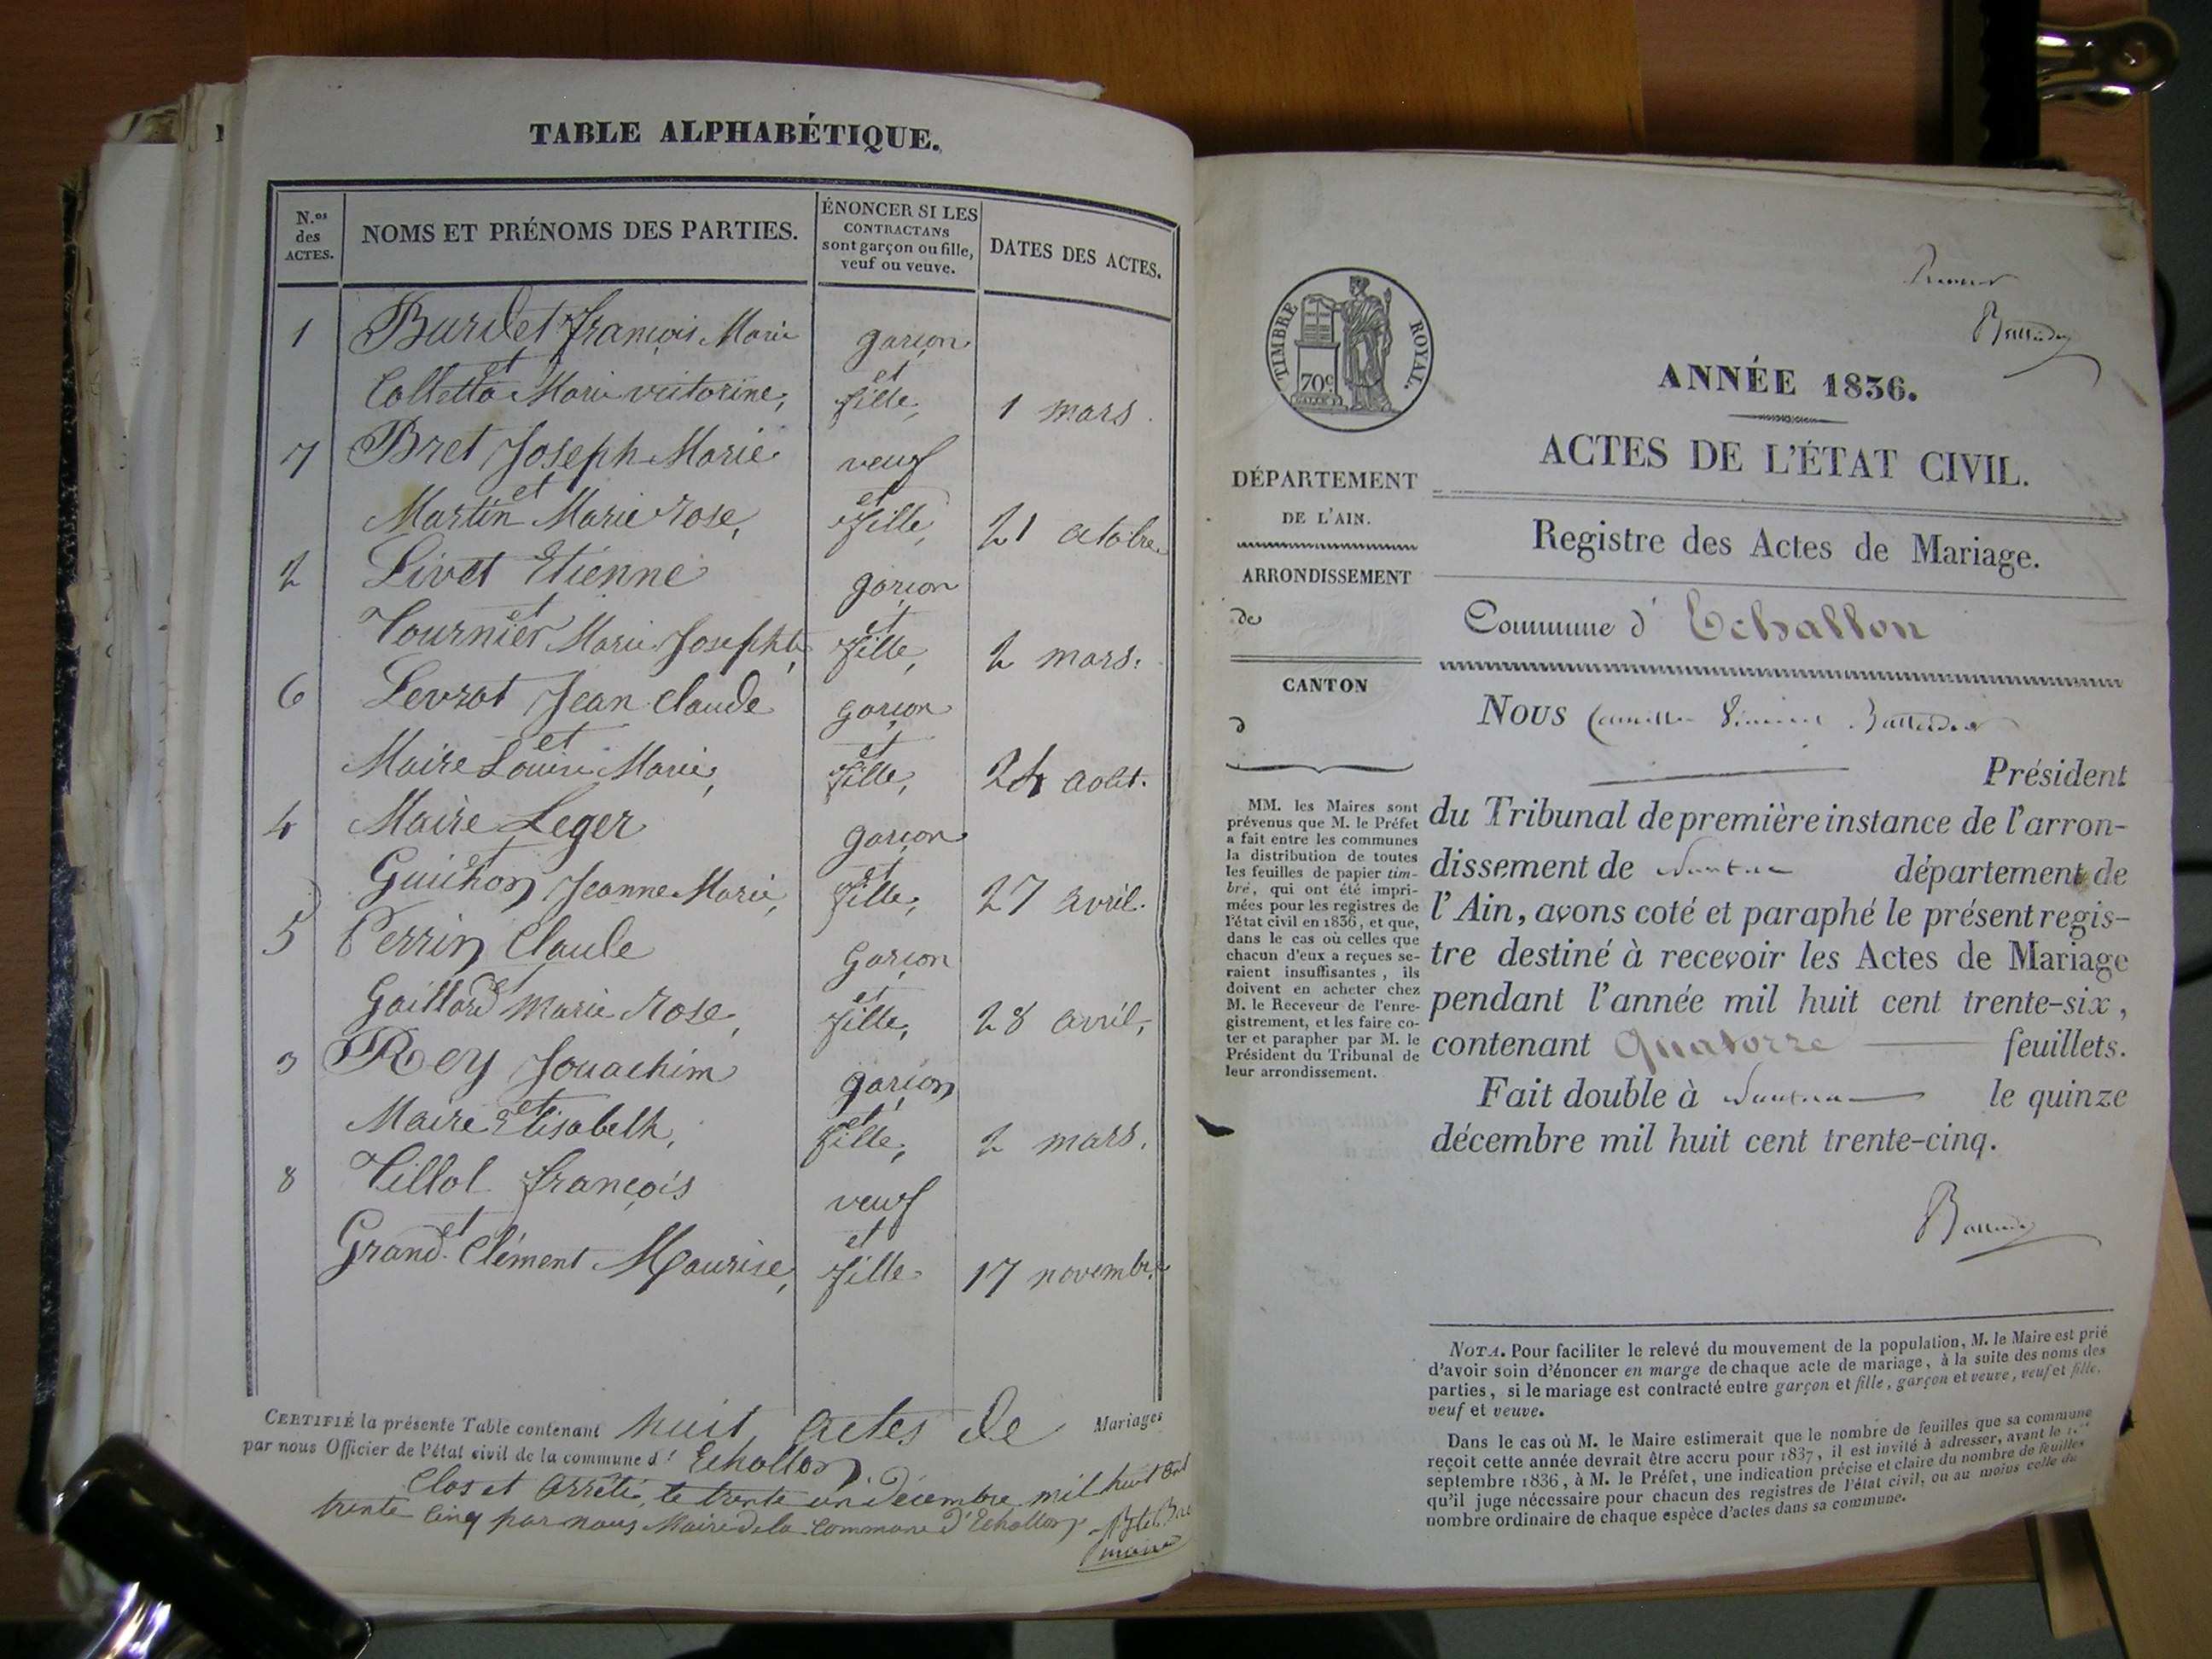 TABLE ALPHABÉTIQUE.
N.os des ACTES.
NOMS ET PRÉNOMS DES PARTIES.
ÉNONCER SI LES
CONTRACTANS
sont garçon ou fille,
veuf ou veuve.
DATES DES ACTES.
1 Burdet françois Marie garçon
et et
Colletta Marie victorine, fille, 1 mars.
7 Bret Joseph Marie veuf
et et
Martin Marie rose, fille, 21 octobre.
2 Livet Etienne garçon
et et
Tournier Marie Josephte, fille, 2 mars.
6 Levrat Jean Claude garçon
et et
Maire Louise Marie, fille, 24 août.
4 Maire Leger garçon
et et
Guichon Jeanne Marie, fille, 27 avril.
5 Perrin Claude garçon
et et
Gaillard marie rose, fille, 28 avril,
3 Rey Jouachim garçon
et et
Maire Elisabeth, fille, 2 mars.
8 Tillol françois veuf
et et
Grand-Clément Maurise, fille. 17 novembre
CERTIFIÉ la présente Table contenant huit actes de Mariages
par nous Officier de l'état civil de la commune d' Echallon.
Clos et arrêté, le trente un décembre mil huit cent
trente cinq par nous Maire de la commune d'Echallon.
maire
Premier
TIMBRE ROYAL.
70c
ANNÉE 1836.
ACTES DE L'ÉTAT CIVIL.
Registre des Actes de Mariage.
Commune d' Echallon
DÉPARTEMENT
DE L'AIN.
ARRONDISSEMENT
de
CANTON
d
MM. les Maires sont
prévenus que M. le Préfet
a fait entre les communes
la distribution de toutes
les feuilles de papier tim-
bré, qui ont été impri-
mées pour les registres de
l'état civil en 1836, et que,
dans le cas où celles que
chacun d'eux a reçues se-
raient insuffisantes, ils
doivent en acheter chez
M. le Receveur de l'enre-
gistrement, et les faire co-
ter et parapher par M. le
Président du Tribunal de
leur arrondissement.
Nous Camille
Président
du Tribunal de première instance de l'arron-
dissement de Nantua département de
l'Ain, avons coté et paraphé le présent regis-
tre destiné à recevoir les Actes de Mariage
pendant l'année mil huit cent trente-six,
contenant Quatorze feuillets.
Fait double à Nantua le quinze
décembre mil huit cent trente-cinq.
NOTA. Pour faciliter le relevé du mouvement de la population, M. le Maire est prié
d'avoir soin d'énoncer en marge de chaque acte de mariage, à la suite des noms des
parties, si le mariage est contracté entre garçon et fille, garçon et veuve, veuf et fille,
veuf et veuve.
Dans le cas où M. le Maire estimerait que le nombre de feuilles que sa commune
reçoit cette année devrait être accru pour 1837, il est invité à adresser, avant le 1.er
septembre 1836, à M. le Préfet, une indication précise et claire du nombre de feuilles
qu'il juge nécessaire pour chacun des registres de l'état civil, ou au moins celle du
nombre ordinaire de chaque espèce d'actes dans sa commune.